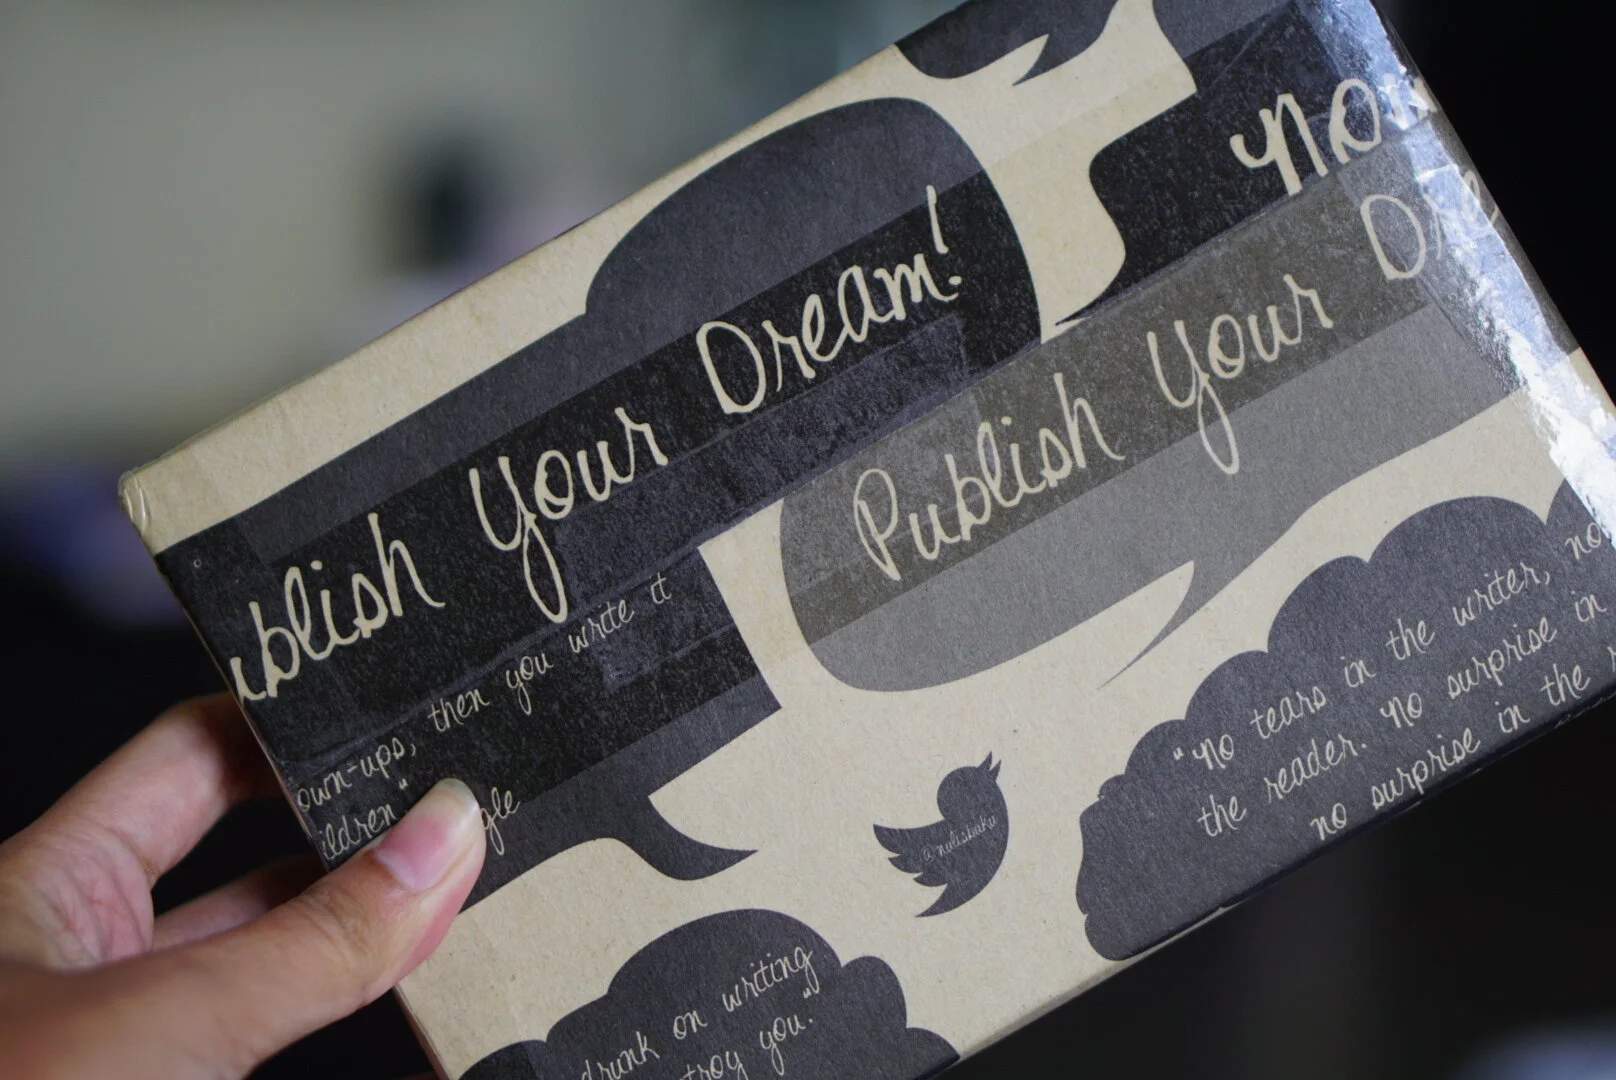 No
Dre
ublish Your Dream!
Publish Your D
own-ups, then you write it
ildren"
gle
@nulisbuku
"No tears in the writer, no
the reader. No surprise in
no surprise in the r
drunk on writing
troy you."